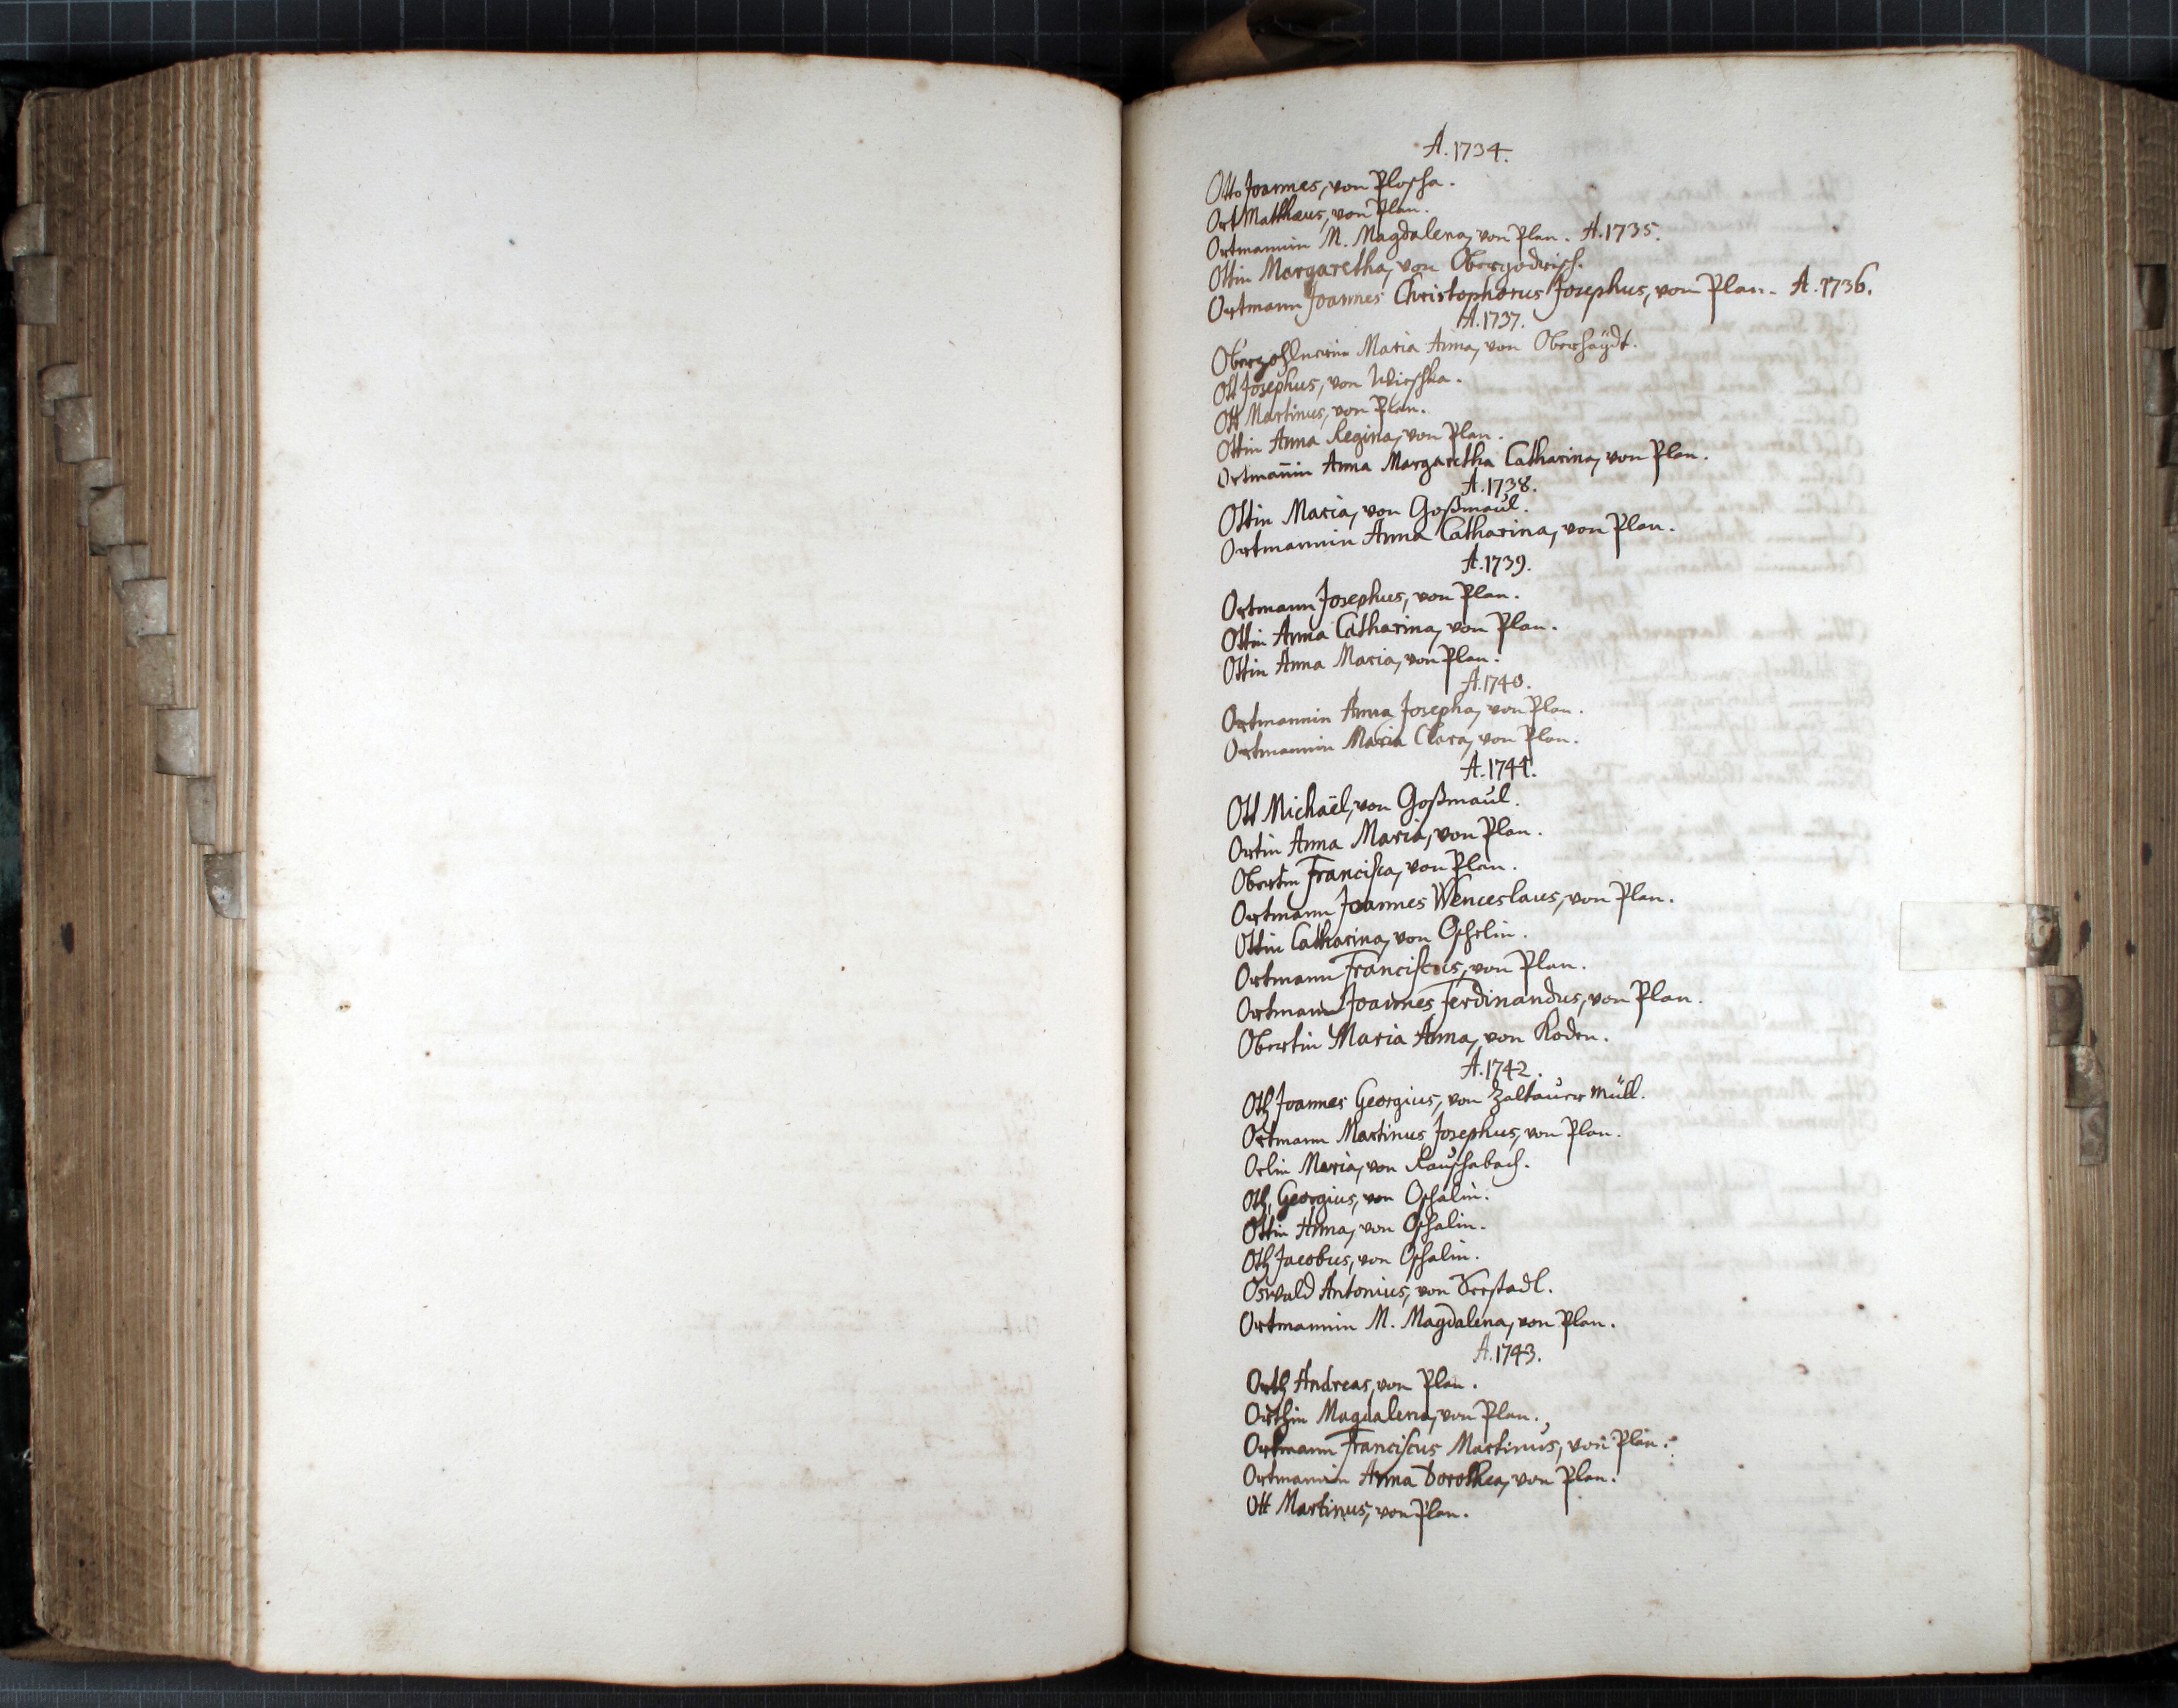 A. 1734.
Otto Joannes, von Ploscha.
Ort Mathaeus, von Plan.
Ortmannin M. Magdalena, von Plan. A. 1735.
Ottin Margaretha, von Obergodrisch.
Ortmann Joannes Christophorus Josephus, von Plan. A. 1736.
A. 1737.
Oberzohlnerin Maria Anna, von Oberhäÿdt.
Ott Josephus, von Wieschka.
Ott Martinus, von Plan.
Ottin Anna Regina, von Plan.
Ortmañin Anna Margaretha Catharina, von Plan.
A. 1738.
Ottin Maria, von Goßmaul.
Ortmannin Anna Catharina, von Plan.
A. 1739.
Ortmann Josephus, von Plan.
Ottin Anna Catharina, von Plan.
Ottin Anna Maria, von Plan.
A. 1740.
Ortmannin Anna Josepha, von Plan.
Ortmannin Maria Clara, von Plan.
A. 1741.
Ott Michaël, von Goßmaul.
Ortin Anna Maria, von Plan.
Obertin Francisca, von Plan.
Ortmann Joannes Wenceslaus, von Plan.
Ottin Catharina, von Oschelin.
Ortmann Franciscus, von Plan.
Ortmann Joannes Ferdinandus, von Plan.
Obertin Maria Anna, von Roden.
A. 1742.
Oth Joannes Georgius, von Zaltauer Müll.
Ortmann Martinus Josephus, von Plan.
Orlin Maria, von Rauschabach.
Oth Georgius, von Oschalin.
Ottin Anna, von Oschalin.
Oth Jacobus, von Oschalin.
Oswald Antonius, von Seestadl.
Ortmannin M. Magdalena, von Plan.
A. 1743.
Orth Andreas, von Plan.
Orthin Magdalena, von Plan.
Ortmann Franciscus Martinus, von Plan.
Ortmannin Anna Dorothea, von Plan.
Ott Martinus, von Plan.